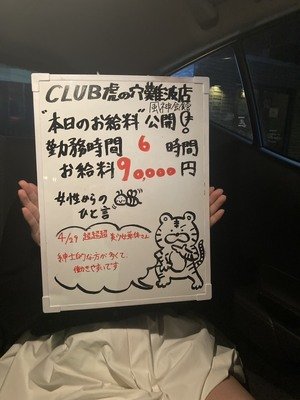 CLUB虎の穴難波店
風神会館
"本日のお給料"公開!
勤務時間 6 時間
お給料 90000円
女性からの
ひと言
4/29 超超超
紳士的な方が多くて、
働きやすいです